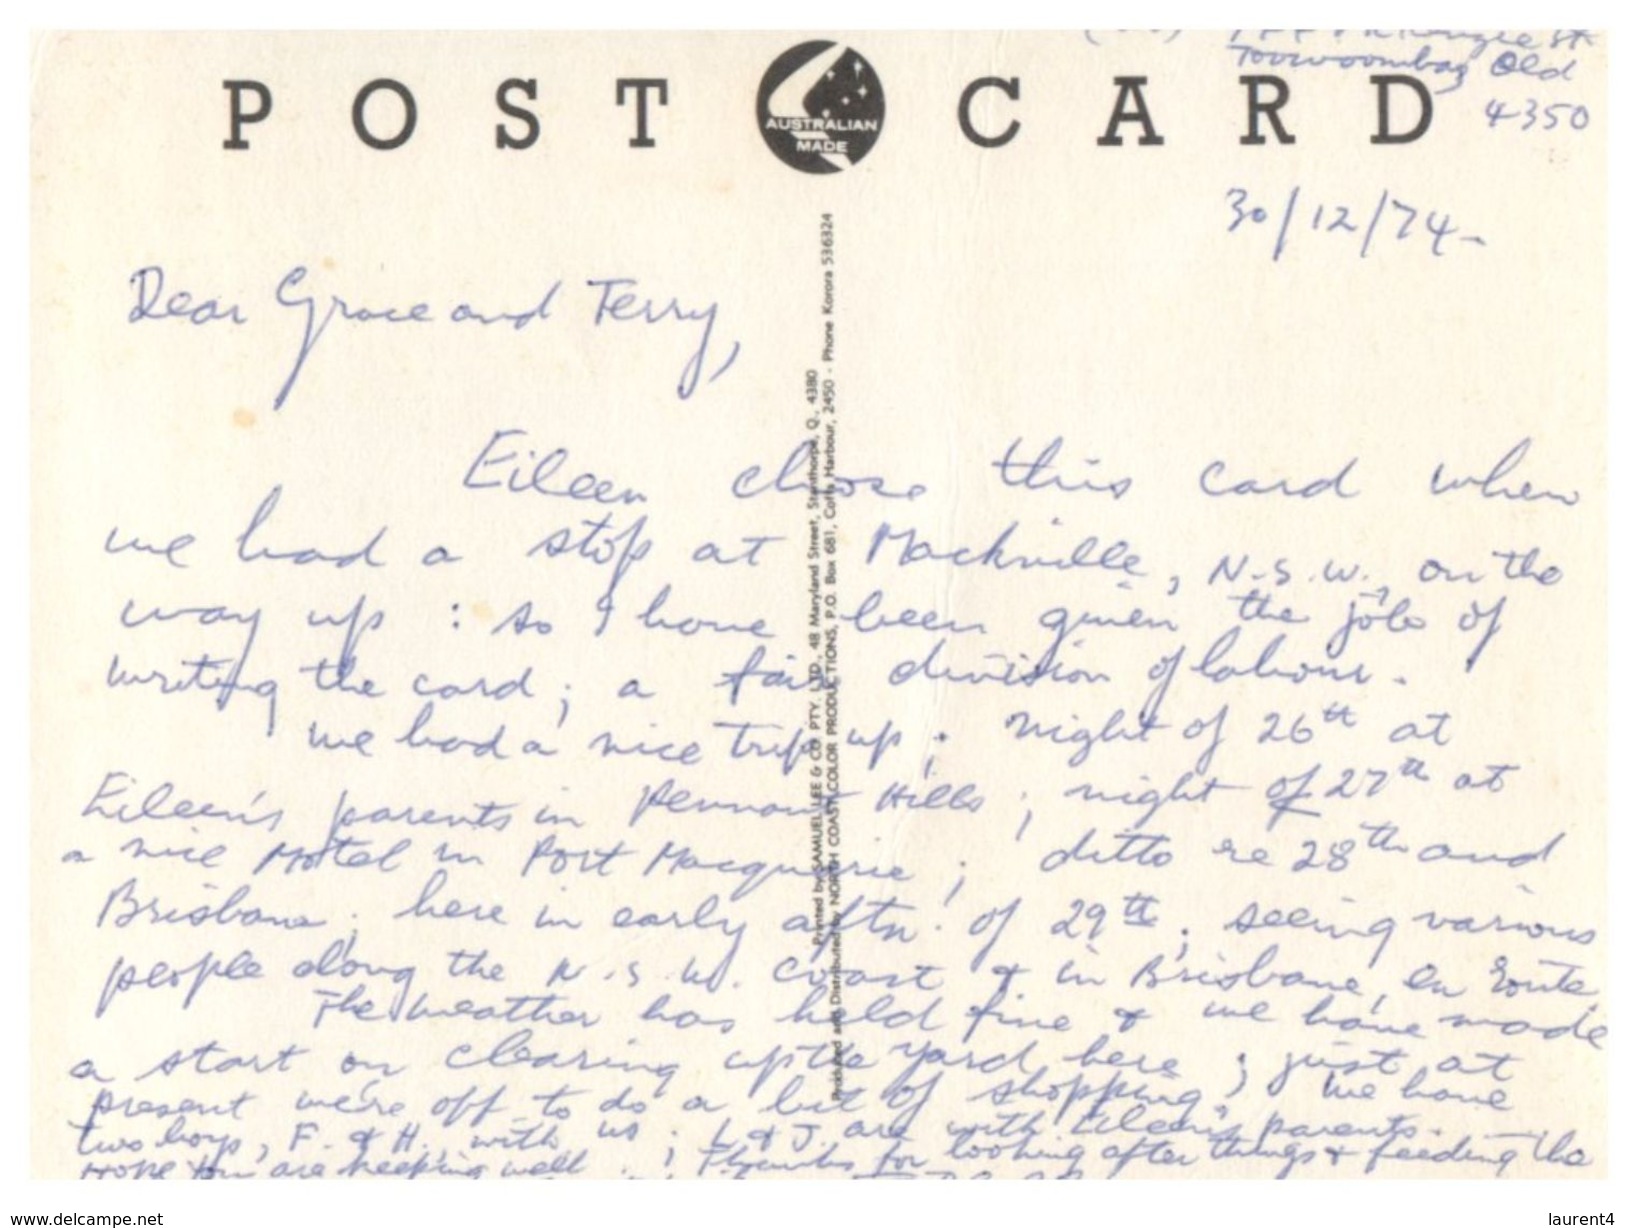 Kenzie St
Toowoomba, Qld
4350
POST CARD
AUSTRALIAN
MADE
30/12/74-
Dear Grace and Terry,
Eileen chose this card when
we had a stop at Macksville, N.S.W., on the
way up : so I have been given the job of
writing the card; a fair division of labour.
We had a nice trip up; night of 26th at
Eileen's parents in Pennant Hills; night of 27th at
a nice Motel in Port Macquarie; ditto re 28th and
Brisbane; here in early aftn. of 29th; seeing various
people along the N.S.W. coast & in Brisbane, en route.
The weather has held fine & we have made
a start on clearing up the yard here; just at
present we're off to do a bit of shopping; We have
two boys, F. & H., with us; L & J. are with Eileen's parents.
Hope you are keeping well; Thanks for looking after things & feeding the
Printed by SAMUEL LEE & CO. PTY. LTD., 48 Maryland Street, Stanthorpe, Q., 4380
Produced and Distributed by NORTH COAST COLOR PRODUCTIONS, P.O. Box 681, Coffs Harbour, 2450 - Phone Korora 536324
www.delcampe.net
laurent4